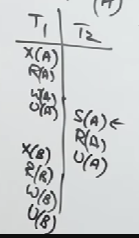 T1 T2
X(A)
R(A)
W(A)
U(A)
S(A) ←
R(A)
U(A)
X(B)
R(B)
W(B)
U(B)